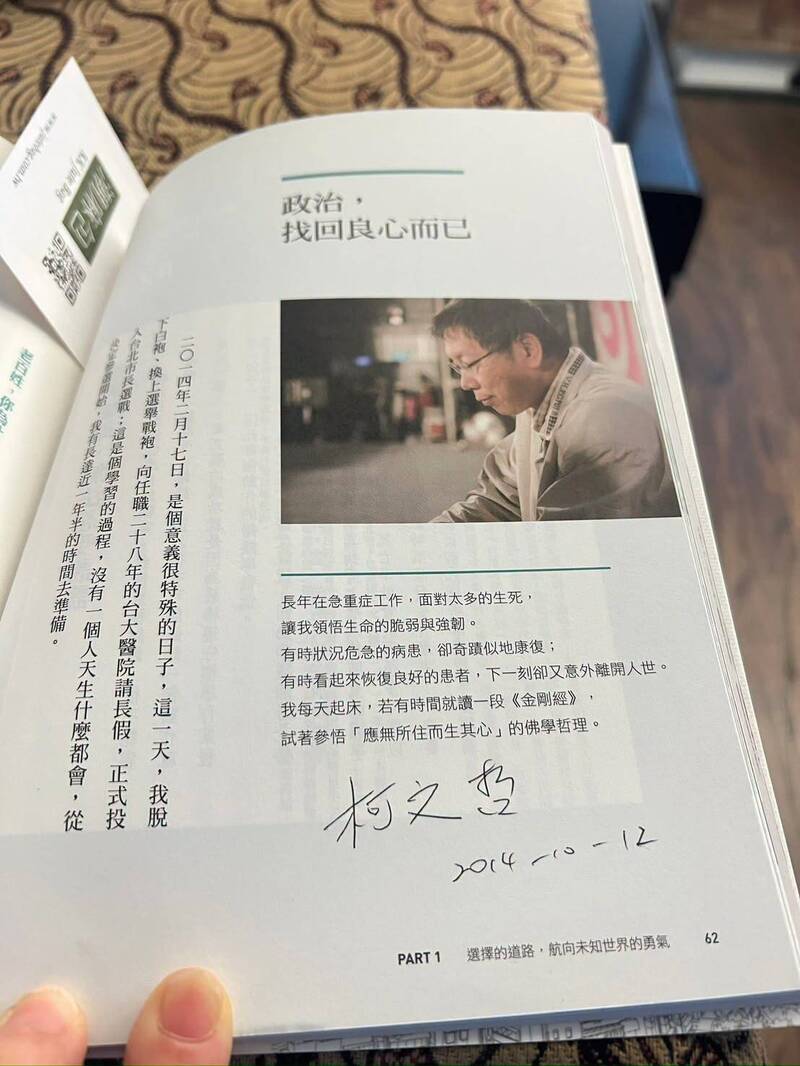 政治，
找回良心而已
長年在急重症工作，面對太多的生死，
讓我領悟生命的脆弱與強韌。
有時狀況危急的病患，卻奇蹟似地康復；
有時看起來恢復良好的患者，下一刻卻又意外離開人世。
我每天起床，若有時間就讀一段《金剛經》，
試著參悟「應無所住而生其心」的佛學哲理。
柯文哲
2014-10-12
二〇一四年二月十七日，是個意義很特殊的日子，這一天，我脫
下白袍、換上選舉戰袍，向任職二十八年的台大醫院請長假，正式投
入台北市長選戰；這是個學習的過程，沒有一個人天生什麼都會，從
開始，我有長達近一年半的時間去準備。
PART 1 選擇的道路，航向未知世界的勇氣 62
老百姓，你